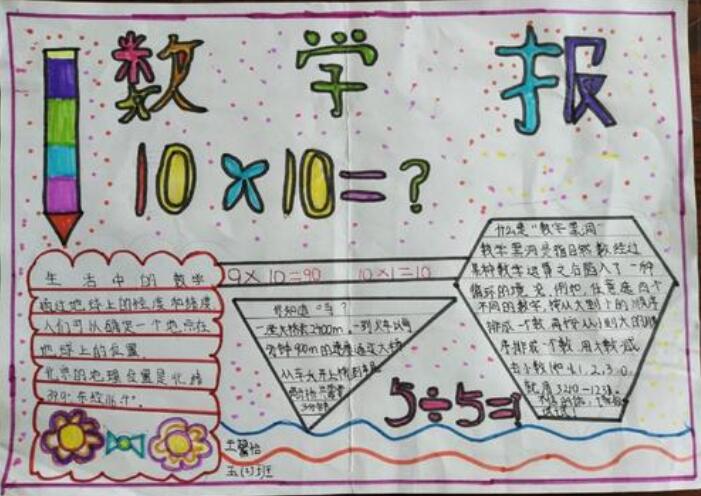 数学报
10×10=?
生活中的数学
通过地球上的经度和纬度
人们可以确定一个地点在
地球上的位置.
北京的地理位置是北纬
39.9°东经116.4°
9×10=90
10×1=10
你知道吗?
一座大桥长2400m,一列火车以每
分钟900m的速度通过大桥
从车头开上桥到车尾
3分钟
什么是“数学黑洞”
数学黑洞是指自然数经过
某种数学运算之后陷入了一种
循环的境况,例如,任意选四个
不同的数字,按从大到小的顺序
排成一个数,再按从小到大的顺
序排成一个数,用大数减
去小数(如4,1,2,3,0
就用3210-123).
试试)
5÷5=1
王馨怡
五(2)班